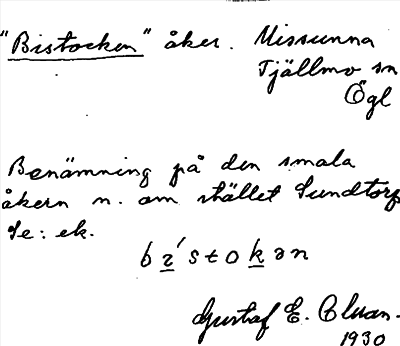 "Bistocken" åker. Missunna
Tjällmo sn
Ögl
Benämning på den smala
åkern n. om stället Sundtorp
Se: ek.
bi´stokən
Gustaf E. Cluan-
1930